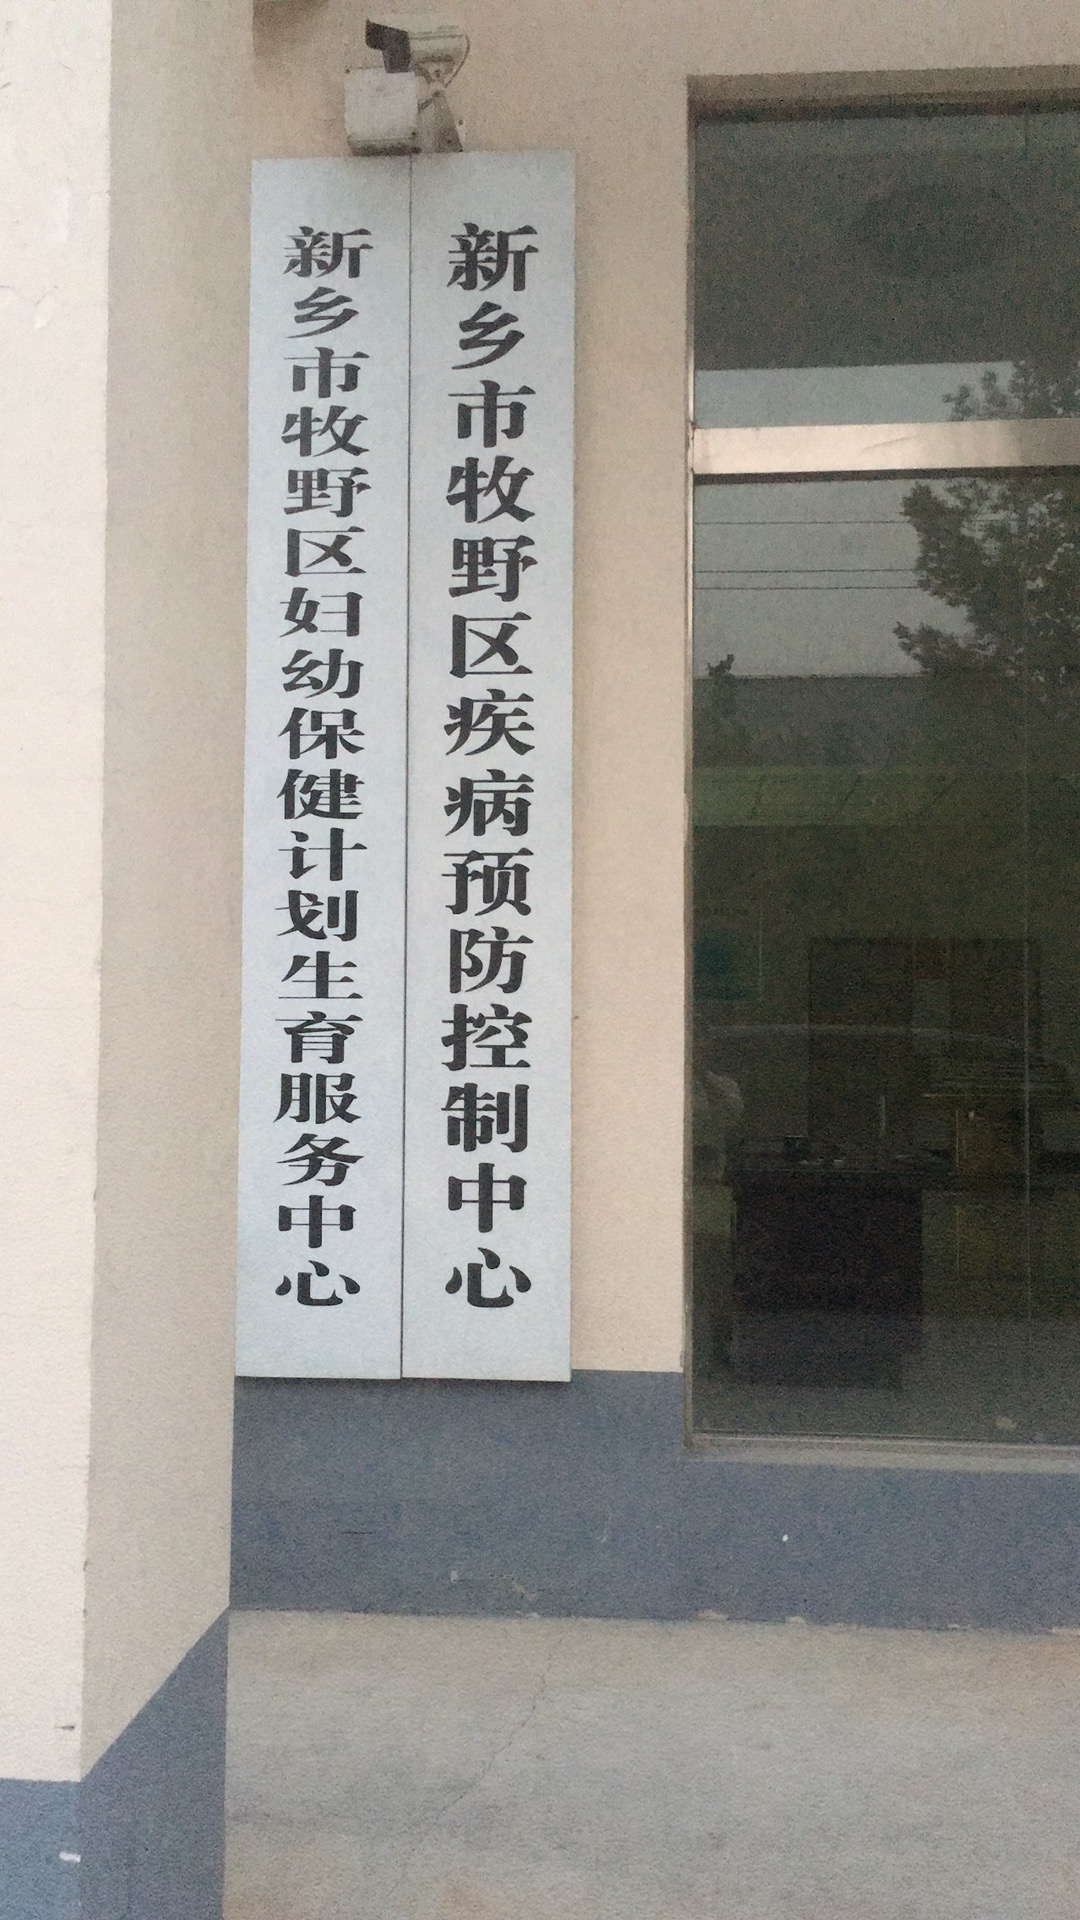 新乡市牧野区疾病预防控制中心
新乡市牧野区妇幼保健计划生育服务中心